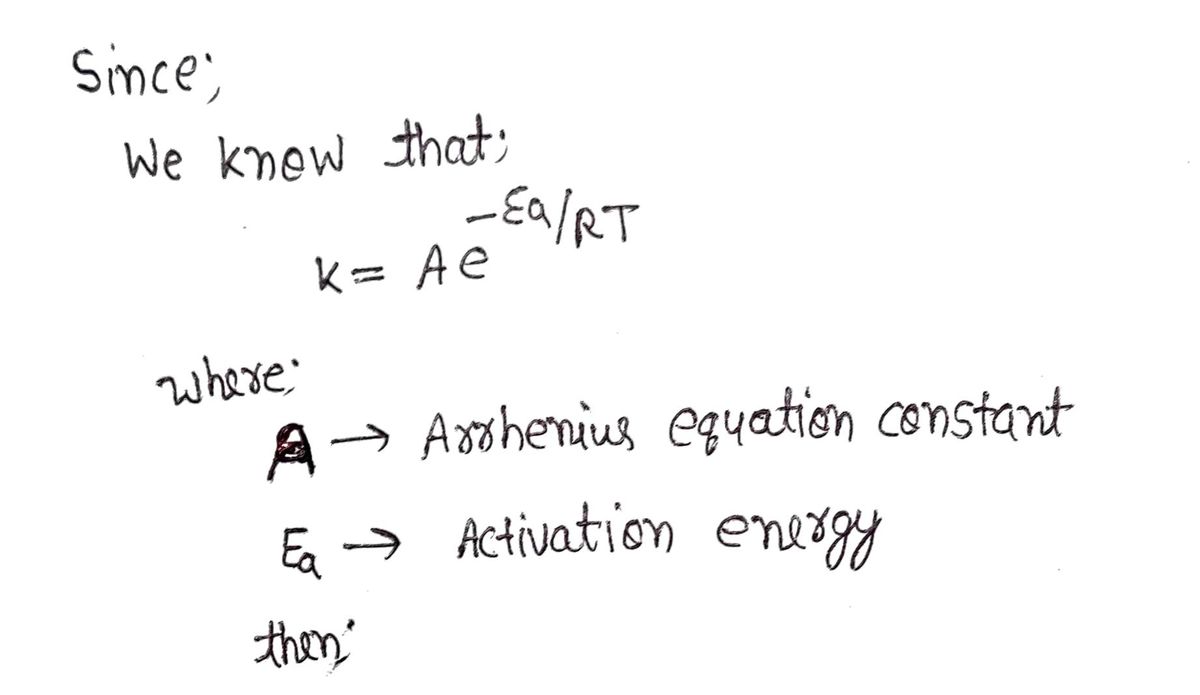 Since;
We know that;
k = A e^-Ea/RT
where;
A → Arrhenius equation constant
Ea → Activation energy
then;